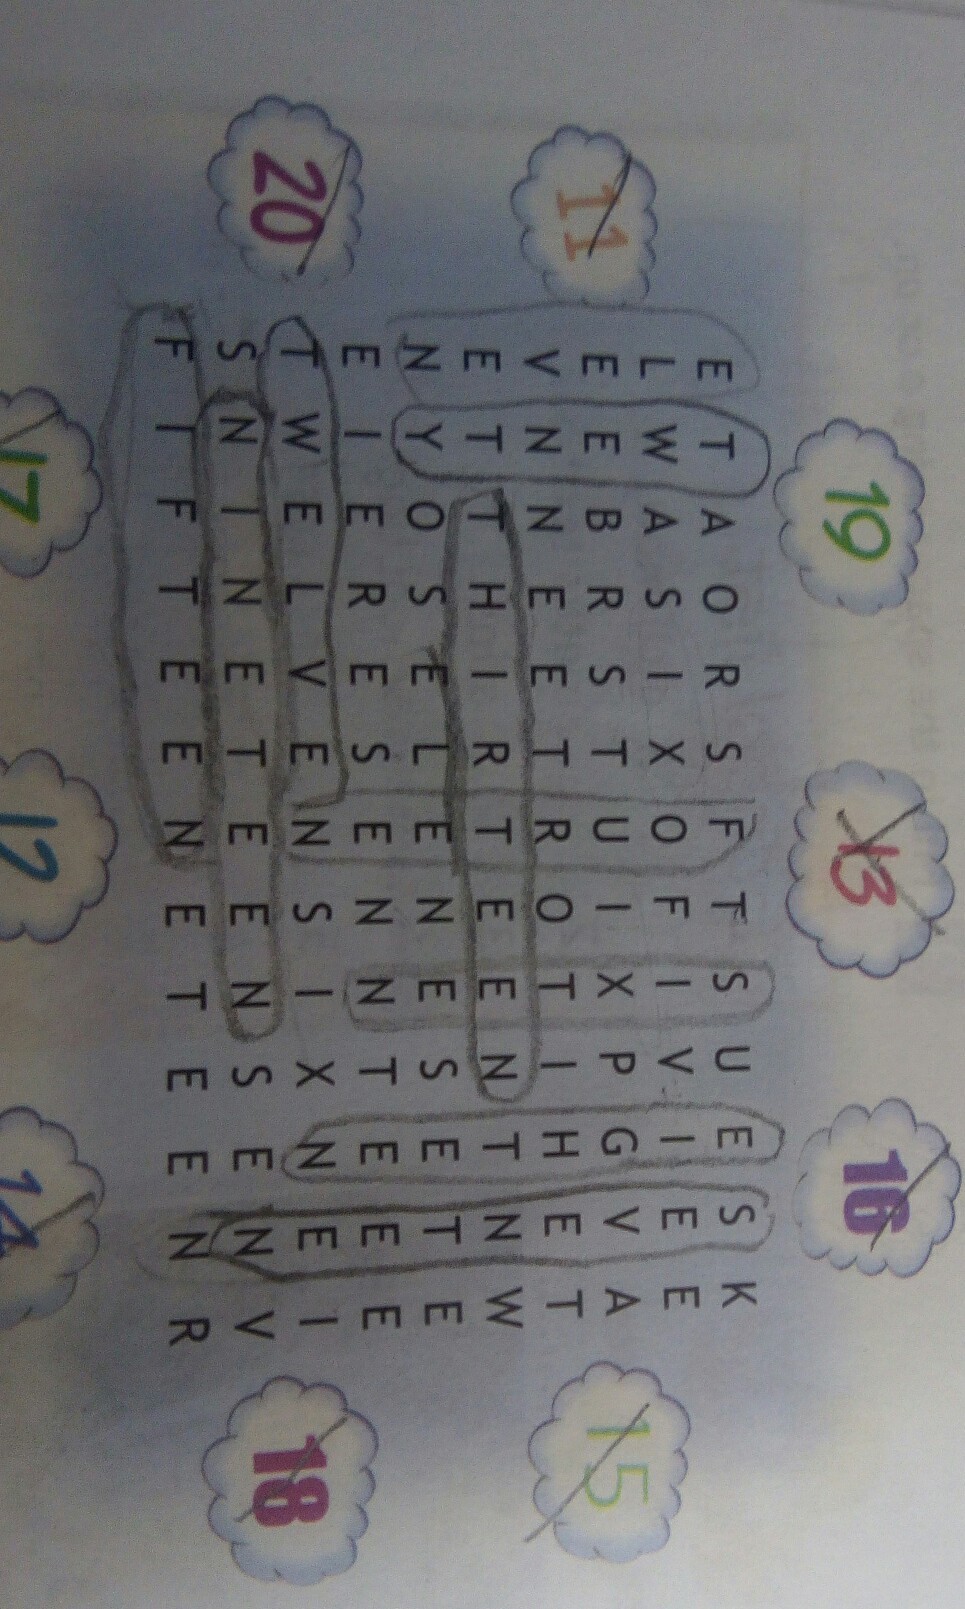 19 13 16
11 15
20 18
E T A O R S F T S U E S K
L W A S I X O F I V I E E
E E B R S T U I X P G V A
V N N E E T R O T I H E T
E T T H I R T E E N T N W
N Y O S E L E N E S E T E
E I E R E S E N N T E E E
T W E L V E N S I X N E I
S N I N E T E E N S E N V
F I F T E E N E T E E N R
17 12 14